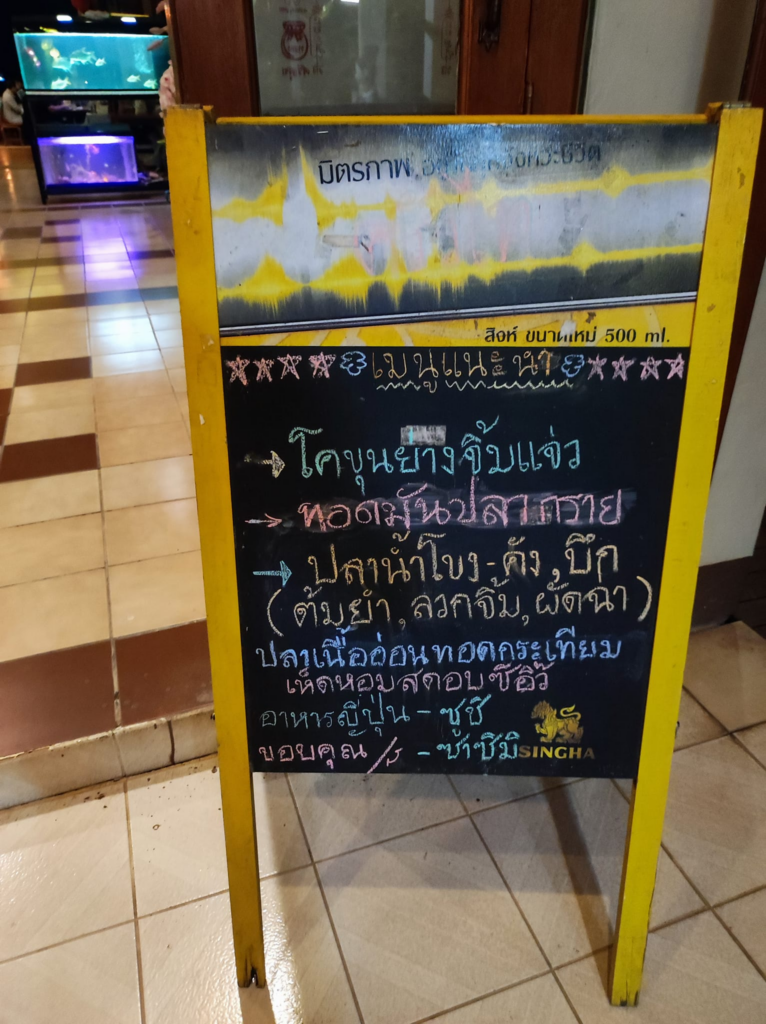 มิตรภาพ
สิงห์ ขนาดใหม่ 500 ml.
เมนูแนะนำ
โคขุนย่างจิ้มแจ่ว
ทอดมันปลากราย
ปลาน้ำโขง - คัง, บึก
(ต้มยำ, ลวกจิ้ม, ผัดฉา)
ปลาเนื้ออ่อนทอดกระเทียม
เห็ดหอมสดอบซีอิ๊ว
อาหารญี่ปุ่น - ซูชิ
ขอบคุณ - ซาซิมิ
SINGHA